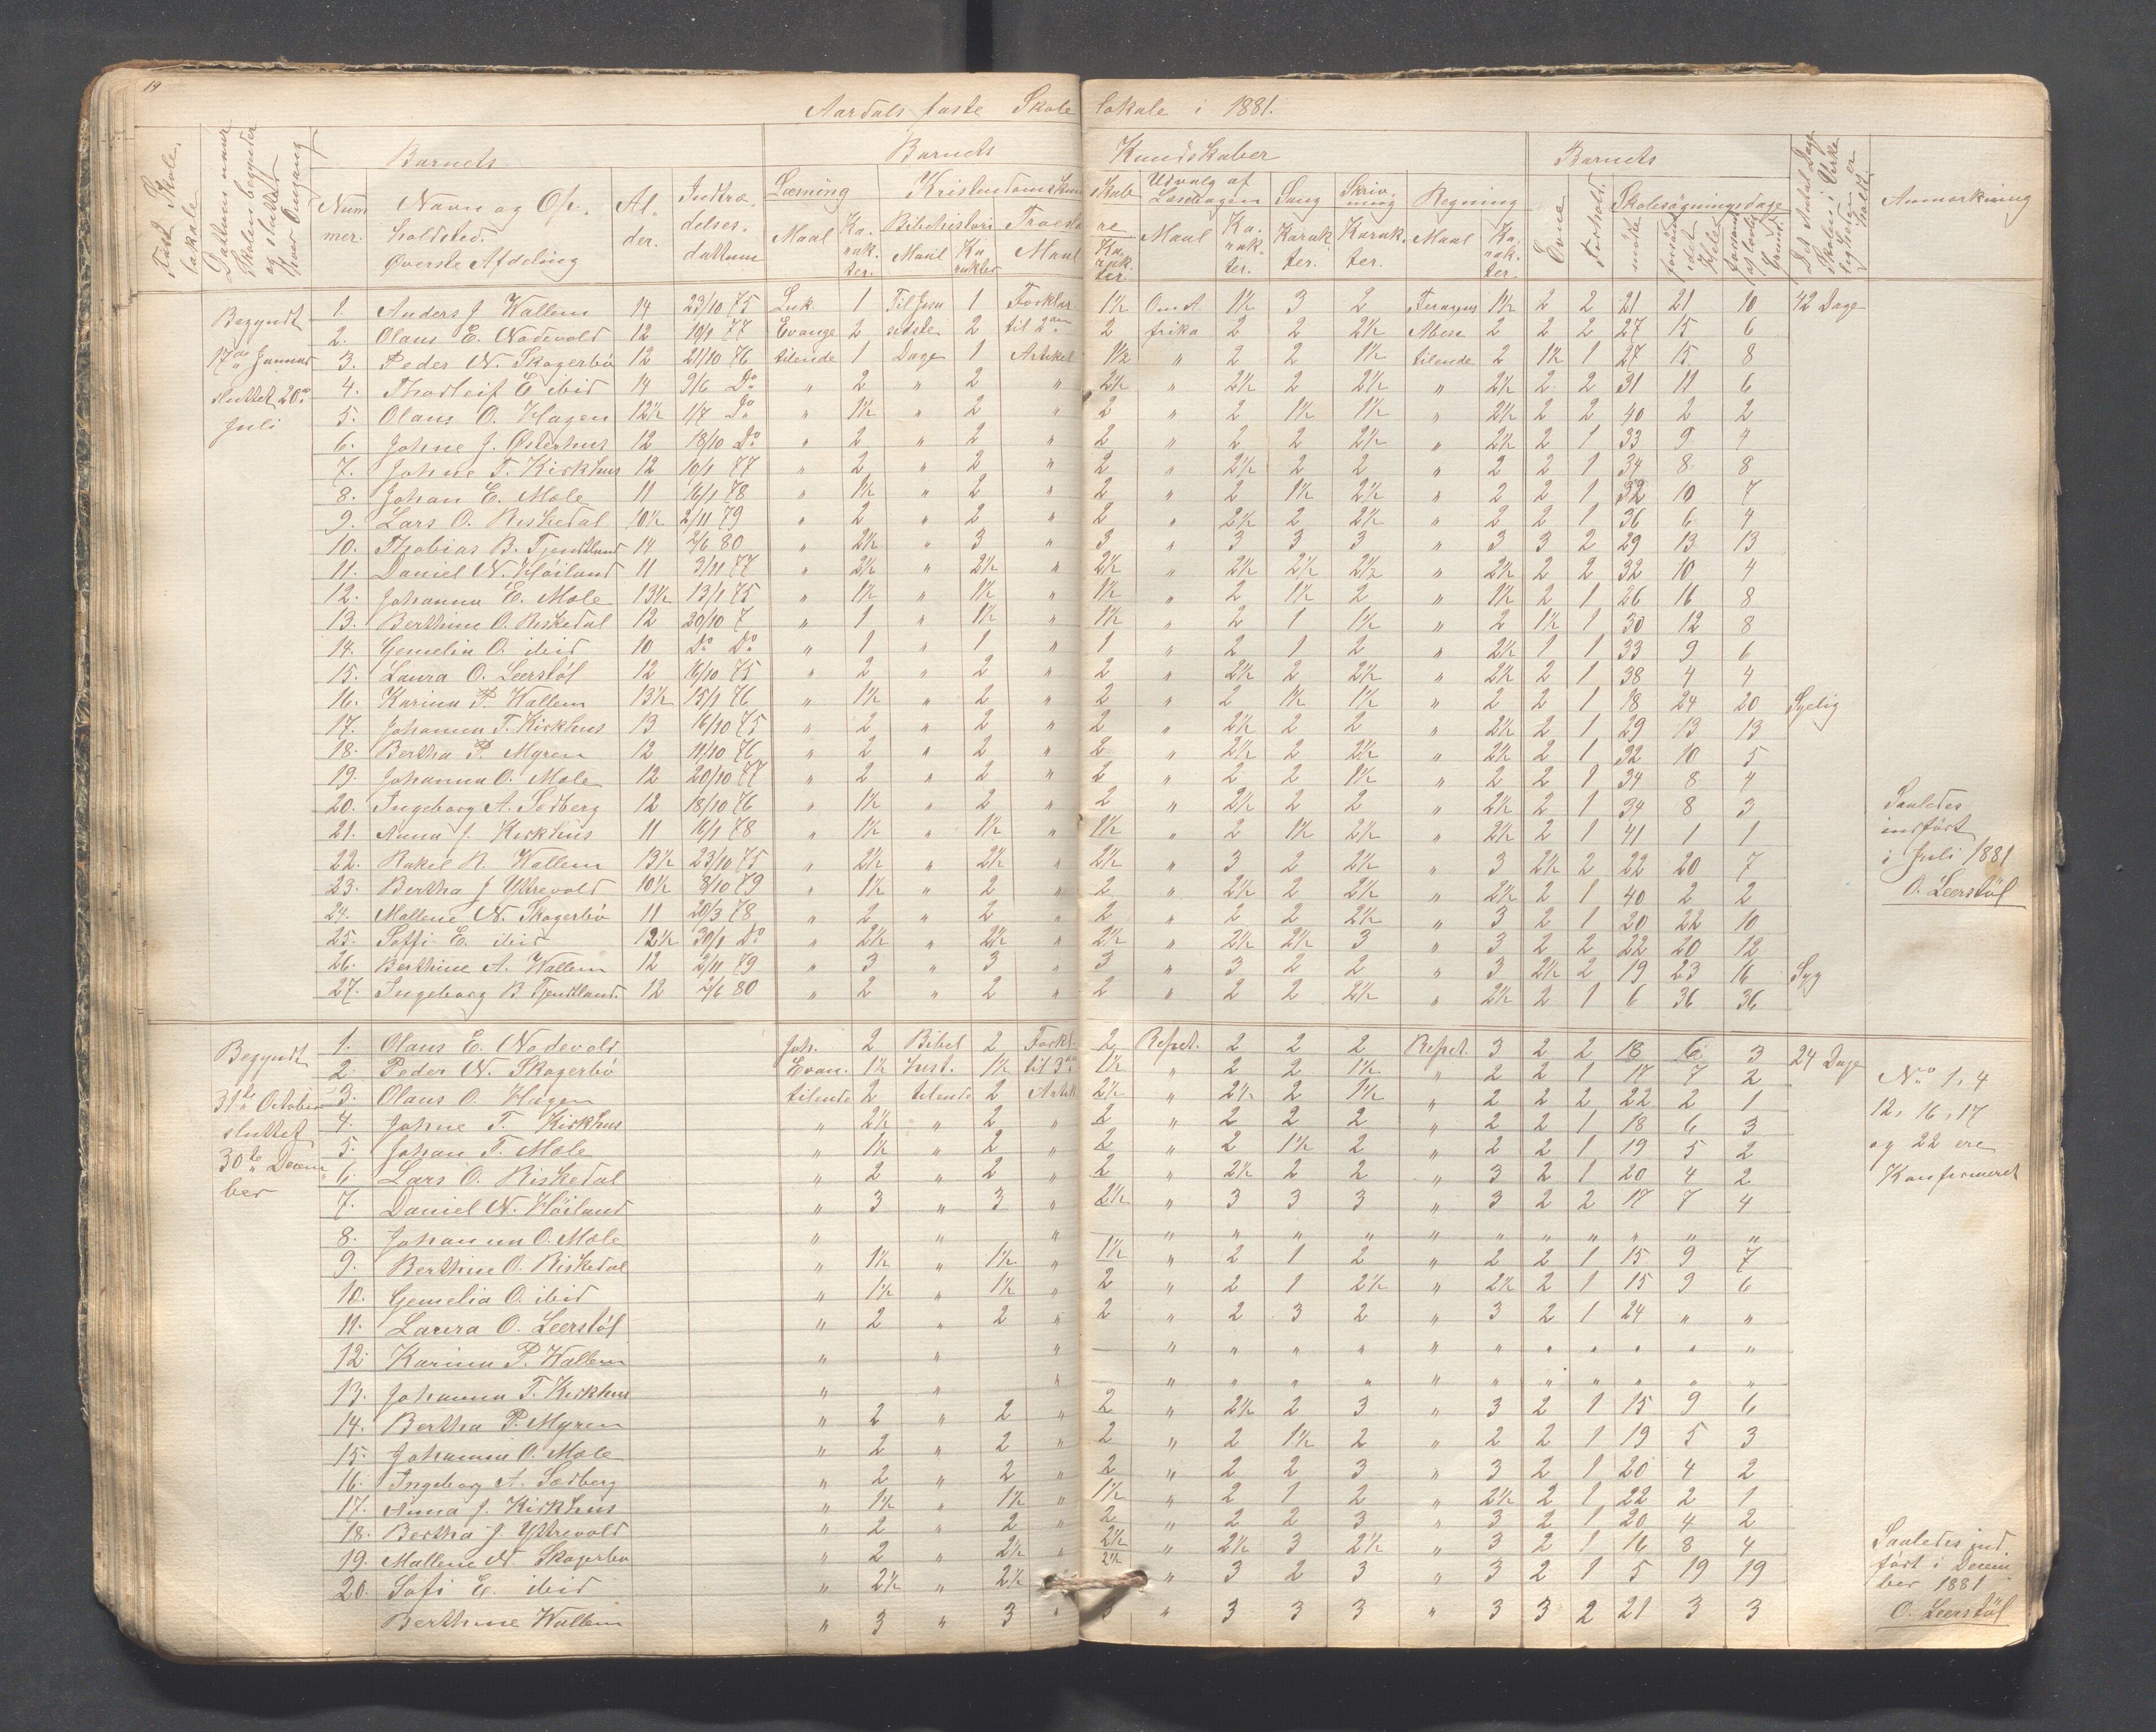 19
Aardals faste Skolelokale i 1881.
Fast Skolelokale.
Barnets
Barnets Kundskaber
Barnets
Anmærkning
Nummer.
Navn og Opholdsted.
Øverste Afdeling
Alder.
Indtrædelsesdattum
Læsning
Maal
Karakter.
Kristendomskundskab
Bibelhistori
Maal
Karakter
Troeslære
Maal
Karakter.
Udvalg af Læsebogen
Maal
Karakter.
Sang
Karakter.
Skrivning
Karakter.
Regning
Maal
Karakter.
Evne
Forhold.
Skolesøgningsdage
mødte
forsømt i det Hele
Begyndt 17de Januar sluttet 20de Juli
1. Anders J. Wallem 14 23/10 75 Luk. 1 Til Jesu 1 Forklar. 1½ Om A 1½ 3 2 1½ 2 2 21 21 10 42 Dage
2. Olaus E. Nodevold 12 10/1 77 Evange 2 sidste 2 til 2den 2 frika 2 2 2½ 2 2 2 27 15 6
3. Peder N. Skogerbø 12 21/10 76 tilende 1 Dage 1 Artikel 1½ " 2 2 1½ tilende 2 1½ 1 27 15 8
4. Thorleif E ibid 14 9/6 Do " 2 " 2 " 2½ " 2½ 2 2½ " 2½ 2 2 31 11 6
5. Olaus O. Hagen 12½ 1/7 Do " 1½ " 2 " 2 " 2 1½ 1½ " 2½ 2 2 40 2 2
6. Johne J. Østerhus 12 18/10 Do " 2 " 2 " 2 " 2 2 2½ " 2½ 2 1 33 9 4
7. Johne T. Kirkhus 12 10/1 77 " 2 " 2 " 2 " 2½ 2 2 " 2 2 1 34 8 8
8. Johan E. Mæle 11 16/1 78 " 1½ " 2 " 2 " 2 1½ 2½ " 2 2 1 32 10 7
9. Lars O. Riskedal 10½ 2/11 79 " 2 " 2 " 2 " 2½ 2 2½ " 2 2 1 36 6 4
10. Thobias B. Tjentland 14 2/6 80 " 2½ " 3 " 3 " 3 3 3 " 3 3 2 29 13 13
11. Daniel N. Høiland 11 3/11 77 " 2½ " 2½ " 2½ " 2½ 2½ 2½ " 2½ 2 2 32 10 4
12. Johanna E. Mæle 13½ 13/1 75 " 1½ " 1½ " 1½ " 2 1½ 2 " 1½ 2 1 26 16 8
13. Berthine O. Riskedal 12 20/10 7 " 1 " 1½ " 1½ " 2 1 1½ " 2 1½ 1 30 12 8
14. Gemelia O. ibid 10 Do Do " 1 " 1 " 1 " 2 1 2 " 2½ 1 1 33 9 6
15. Laura O. Leerstøl 12 16/10 75 " 2 " 2 " 2 " 2½ 2 2½ " 2½ 2 1 38 4 4
16. Karina P. Wallem 13½ 15/1 76 " 1½ " 2 " 2 " 2 1½ 1½ " 2 2 1 18 24 20 Sygelig
17. Johanna T. Kirkhus 13 16/10 75 " 2 " 2 " 2 " 2½ 2 2 " 2½ 2 1 29 13 13
18. Bertha P. Myren 12 11/10 76 " 2 " 2 " 2 " 2½ 2 2½ " 2½ 2 1 32 10 5
19. Johanna O. Mæle 12 20/10 77 " 2 " 2 " 2 " 2 2 1½ " 2 2 1 34 8 4
20. Ingeborg A. Sedberg 12 18/10 76 " 1½ " 2 " 2 " 2½ 2 2 " 2½ 2 1 34 8 3
21. Anna J. Kirkhus 11 16/1 78 " 1½ " 1½ " 1½ " 2 1½ 2½ " 2½ 2 1 41 1 1
22. Rakel R. Wallem 13½ 23/10 75 " 2½ " 2½ " 2½ " 3 2 2½ " 3 2½ 2 22 20 7
23. Bertha J Yttrevold 10½ 8/10 79 " 1½ " 2 " 2 " 2½ 2 2½ " 2½ 2 1 40 2 2
24. Mallene N. Skogerbø 11 20/3 78 " 2 " 2 " 2 " 2 2 2½ " 3 2 1 20 22 10
25. Soffi E. ibid 12½ 30/1 Do " 2½ " 2½ " 2½ " 2½ 2½ 3 " 3 2 2 22 20 12
26. Berthine A. Wallem 12 2/11 79 " 3 " 3 " 3 " 3 2 2 " 3 2½ 2 19 23 16 Syg
27. Ingeborg B. Tjentland. 12 2/6 80 " 2 " 2 " 2 " 2 2 2½ " 2½ 2 1 6 36 36
Saaledes
indført
i Juli 1881
O. Leerstøl
Begyndt 31te October sluttet 30te December
1. Olaus E. Nodevold Joh. 2 Bibel 2 Forkl. 2 Repet. 2 2 2 Repet. 3 2 2 18 6 3 24 Dage
2. Peder N. Skogerbø Evan. 1½ hist. 1½ til 3die 1½ " 2 2 1½ " 2 2 1 17 7 2
3. Olaus O. Hagen tilende 2 tilende 2 Artik 2½ " 2½ 2 1½ " 2 2 2 22 2 1
4. Johne T. Kirkhus " 2½ " 2 " 2 " 2 2 2 " 2 2 1 18 6 3
5. Johan T. Mæle " 1½ " 2 " 2 " 2 1½ 2 " 2 2 1 19 5 2
6. Lars O. Riskedal " 2 " 2 " 2 " 2½ 2 2 " 3 2 1 20 4 2
7. Daniel N. Høiland " 3 " 3 " 2½ " 3 3 3 " 3 2 2 17 7 4
8. Johanna O. Mæle " " " — " " " " " " " " " " "
9. Berthine O. Riskedal " 1½ " 1½ " 1½ " 2 1 2 " 2 2 1 15 9 7
10. Gemelia O. ibid " 1½ " 1½ " 2 " 2 1 2½ " 2½ 2 1 15 9 6
11. Laura O. Leerstøl " 2 " 2 " 2 " 2 3 2 " 3 2 1 24 " "
12. Karina P. Wallem " " " — " " " " " " " " " " "
13. Johanna T. Kirkhus " " " " " " " " " " " " " "
14. Bertha P. Myren " 2 " 2 " 2 " 2½ 2 3 " 3 2 1 15 9 6
15. Johanna O. Mæle " 2 " 2 " 2 " 2 1½ 2 " 2 2 1 19 5 3
16. Ingeborg A. Sedberg " 2 " 2 " 2 " 2 2 3 " 3 2 1 20 4 2
17. Anna J. Kirkhus " 1½ " 1½ " 1½ " 2 1 2 " 2½ 2 1 22 2 1
18. Bertha J. Yttrevold " 2 " 2 " 2 " 2 2 3 " 3 2 1 20 4 2
19. Mallene N. Skogerbø " 2 " 2½ " 2½ " 2½ 3 2½ " 3 2 1 16 8 4
20. Sofi E. ibid " 2½ " 2½ 2½ " 3 2 3 " 3 2 1 5 19 19
Berthine Wallem " 3 " 3 " 3 " 3 3 3 " 3 3 2 21 3 3
No 1, 4
12, 16, 17
og 22 ere
Konfirmeret
Saaledes ind-
ført i Decem-
ber 1881
O. Leerstøl